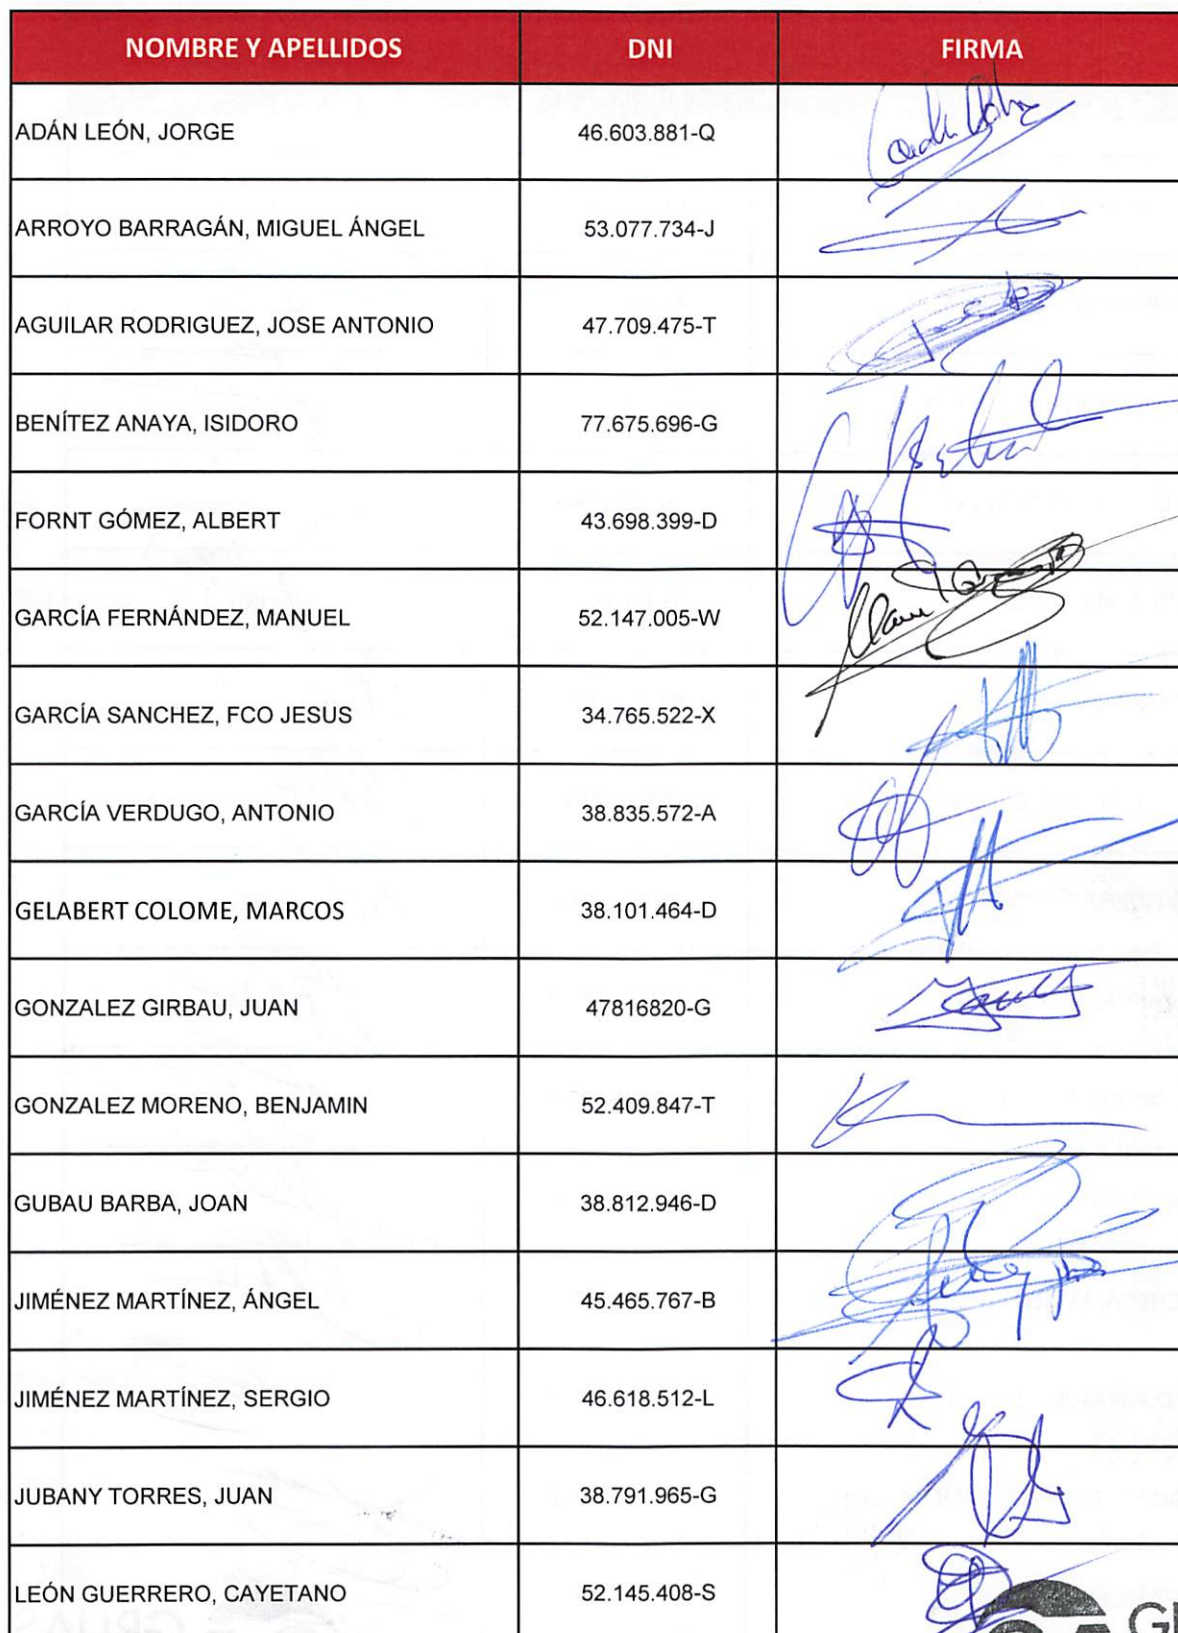 NOMBRE Y APELLIDOS DNI FIRMA
ADÁN LEÓN, JORGE 46.603.881-Q
ARROYO BARRAGÁN, MIGUEL ÁNGEL 53.077.734-J
AGUILAR RODRIGUEZ, JOSE ANTONIO 47.709.475-T
BENÍTEZ ANAYA, ISIDORO 77.675.696-G
FORNT GÓMEZ, ALBERT 43.698.399-D
GARCÍA FERNÁNDEZ, MANUEL 52.147.005-W
GARCÍA SANCHEZ, FCO JESUS 34.765.522-X
GARCÍA VERDUGO, ANTONIO 38.835.572-A
GELABERT COLOME, MARCOS 38.101.464-D
GONZALEZ GIRBAU, JUAN 47816820-G
GONZALEZ MORENO, BENJAMIN 52.409.847-T
GUBAU BARBA, JOAN 38.812.946-D
JIMÉNEZ MARTÍNEZ, ÁNGEL 45.465.767-B
JIMÉNEZ MARTÍNEZ, SERGIO 46.618.512-L
JUBANY TORRES, JUAN 38.791.965-G
LEÓN GUERRERO, CAYETANO 52.145.408-S